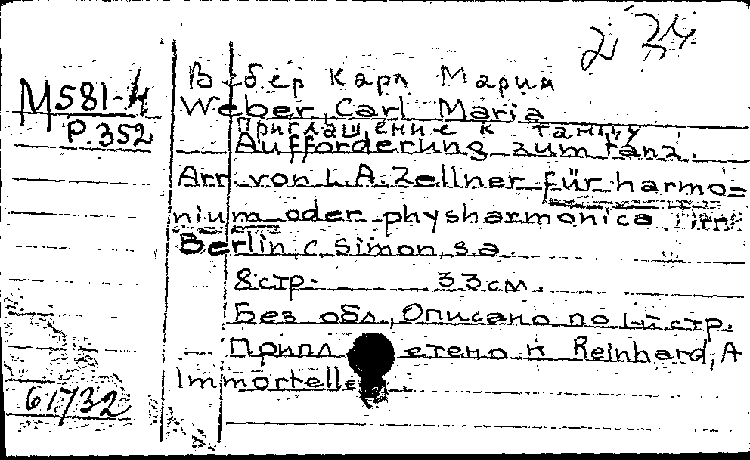 2 34
Вебер Карл Мария
M581-4
Weber, Carl Maria
Приглашение к танцу
P.352
Aufforderung zum tanz.
Arr. von L.A. Zellner für harmo=
nium oder physharmonica
Berlin, C. Simon, s.a.
8 стр. 33 см.
Без обл., Описано по 1-й стр.
Приплетено к Reinhard, A
Immortelle
61732